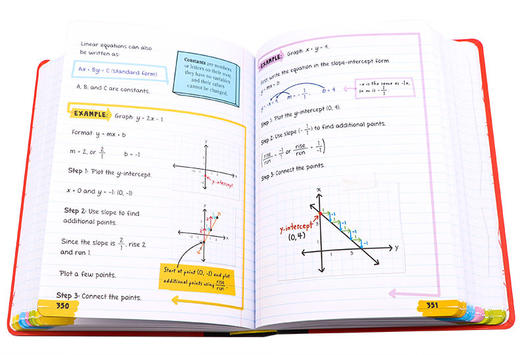 Linear equations can also
be written as:
Ax + By = C (standard form)
A, B, and C are constants.
Constants are numbers
or letters on their own;
they have no variables
and their values
cannot be changed.
EXAMPLE: Graph y = 2x - 1
Format: y = mx + b
m = 2, or 2/1 b = -1
Step 1: Plot the y-intercept.
x = 0 and y = -1: (0, -1)
y-intercept
Step 2: Use slope to find
additional points.
Since the slope is 2/1, rise 2
and run 1.
Plot a few points.
Start at point (0, -1) and plot
additional points using rise/run.
Step 3: Connect the points.
350
EXAMPLE: Graph x + y = 4.
First write the equation in the slope-intercept form
y = mx + b
y = -x + 4 m = -1/1 b = 4
-x is the same as -1x,
so m is -1/1
Step 1: Plot the y-intercept (0, 4).
Step 2: Use slope (-1/1) to find additional points.
(rise/run = -1/1 or rise/run = 1/-1)
Step 3: Connect the points.
x
y-intercept
(0, 4)
y
351